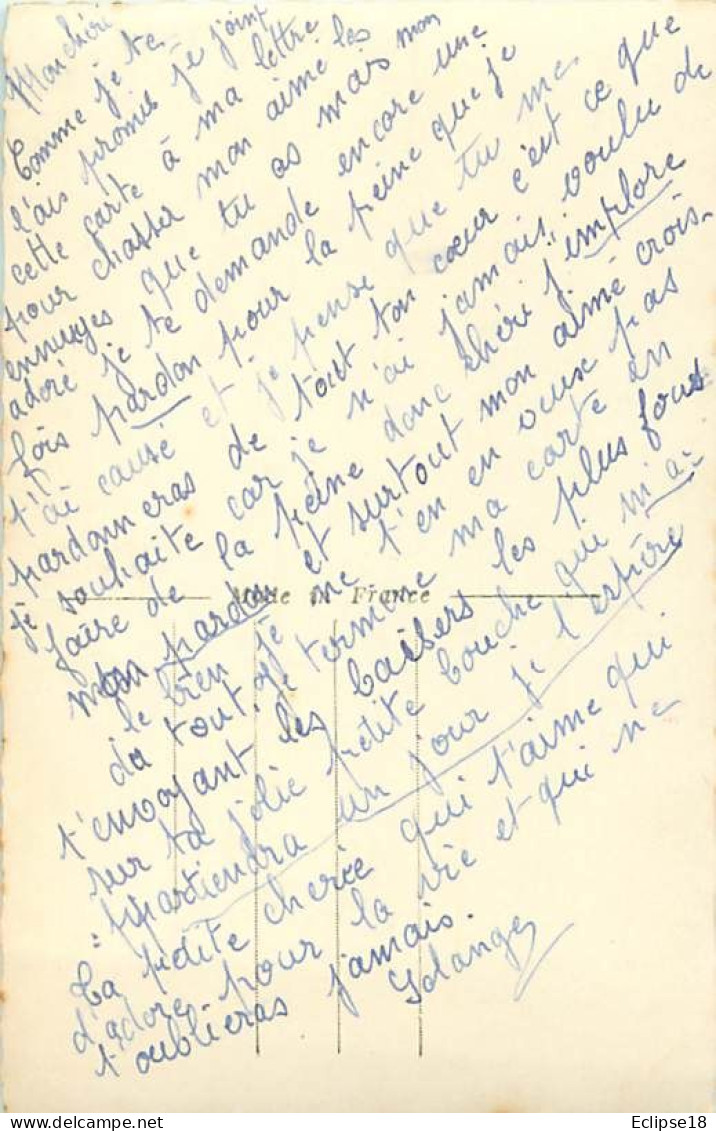 Mon chéri
Comme je te
l'ais promis je joint
cette carte à ma lettre
pour chasser mon aimé les
ennuyes que tu as mais mon
adoré je te demande encore une
fois pardon pour la peine que je
t'ai causé et je pense que tu me
pardonneras de tout ton cœur c'est ce que
je souhaite car je n'ai jamais voulu de
faire de la peine donc chéri j'implore
mon pardon et surtout mon aimé crois-
le bien je ne t'en en veux pas
du tout. Je termine ma carte en
t'envoyant les baisers les plus fous
sur ta jolie petite bouche qui m'a=
=ppartiendra un jour je l'espère
Ta petite cheriee qui t'aime qui
d'adore pour la vie et qui ne
t'oublieras jamais.
Solange
Made in France
Eclipse18